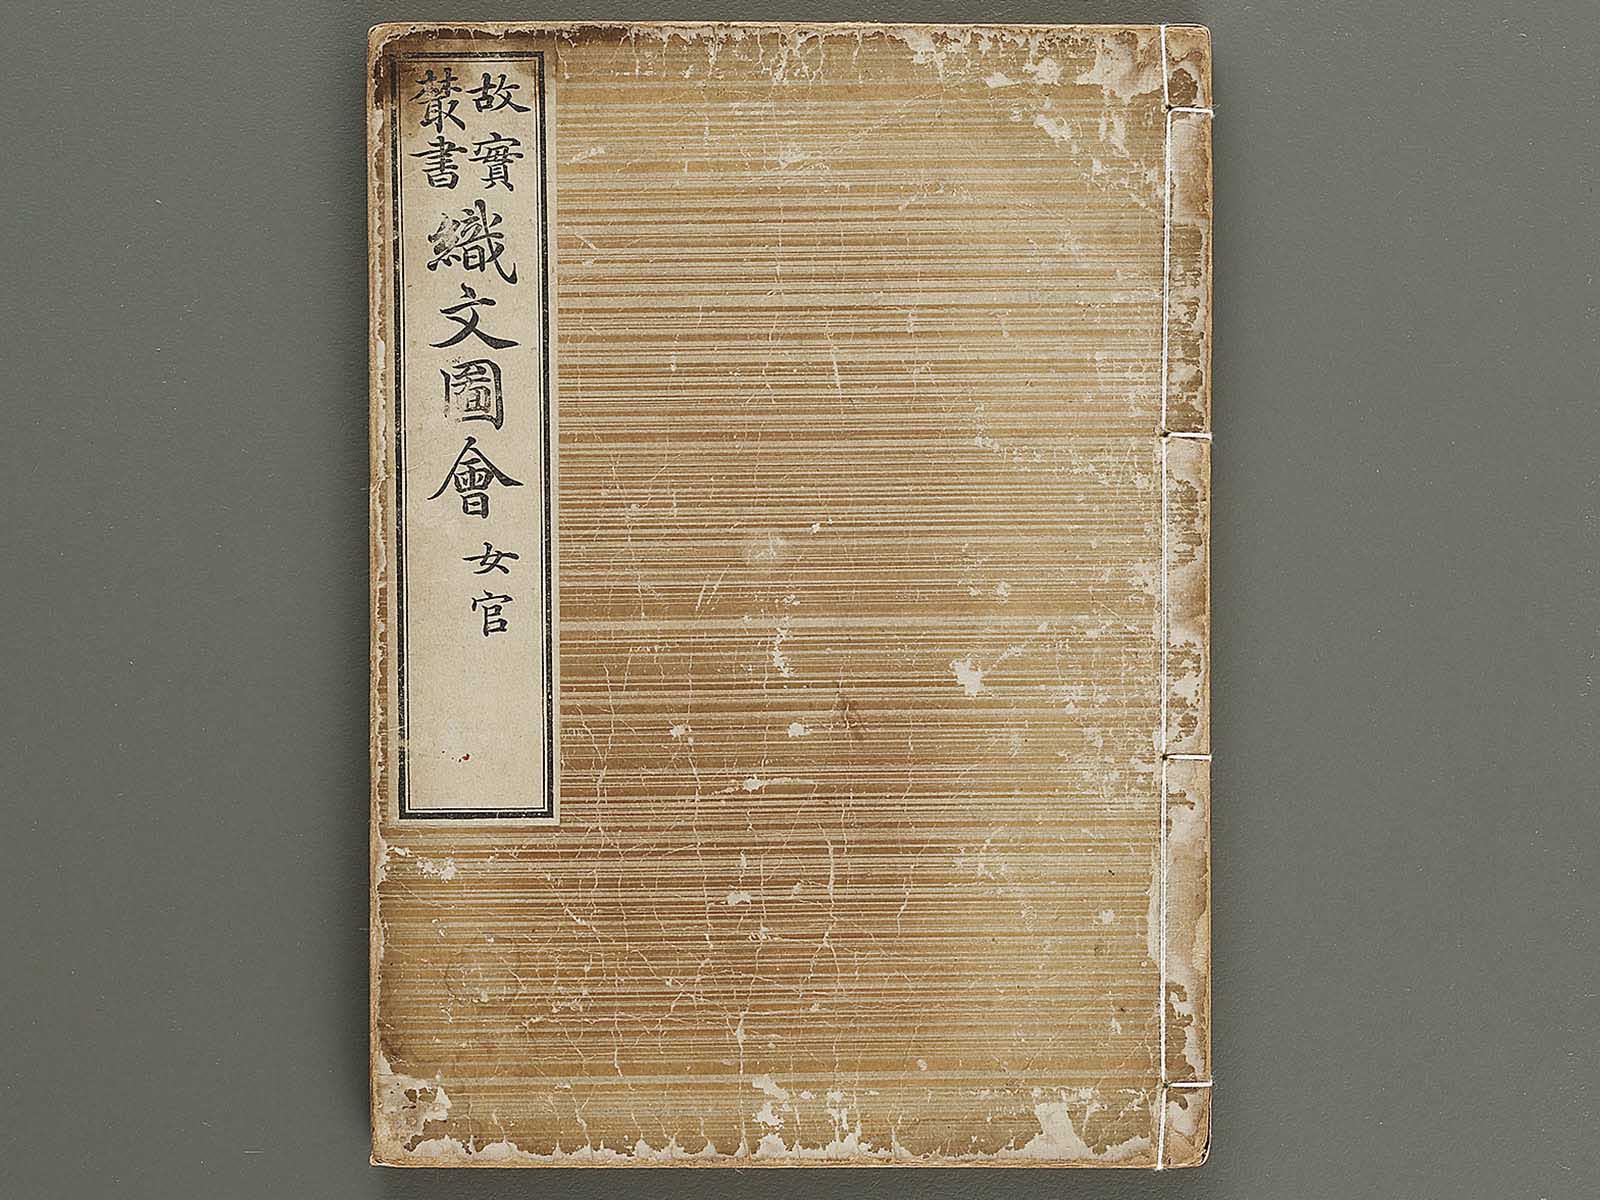 故實
叢書
織文圖會
女官